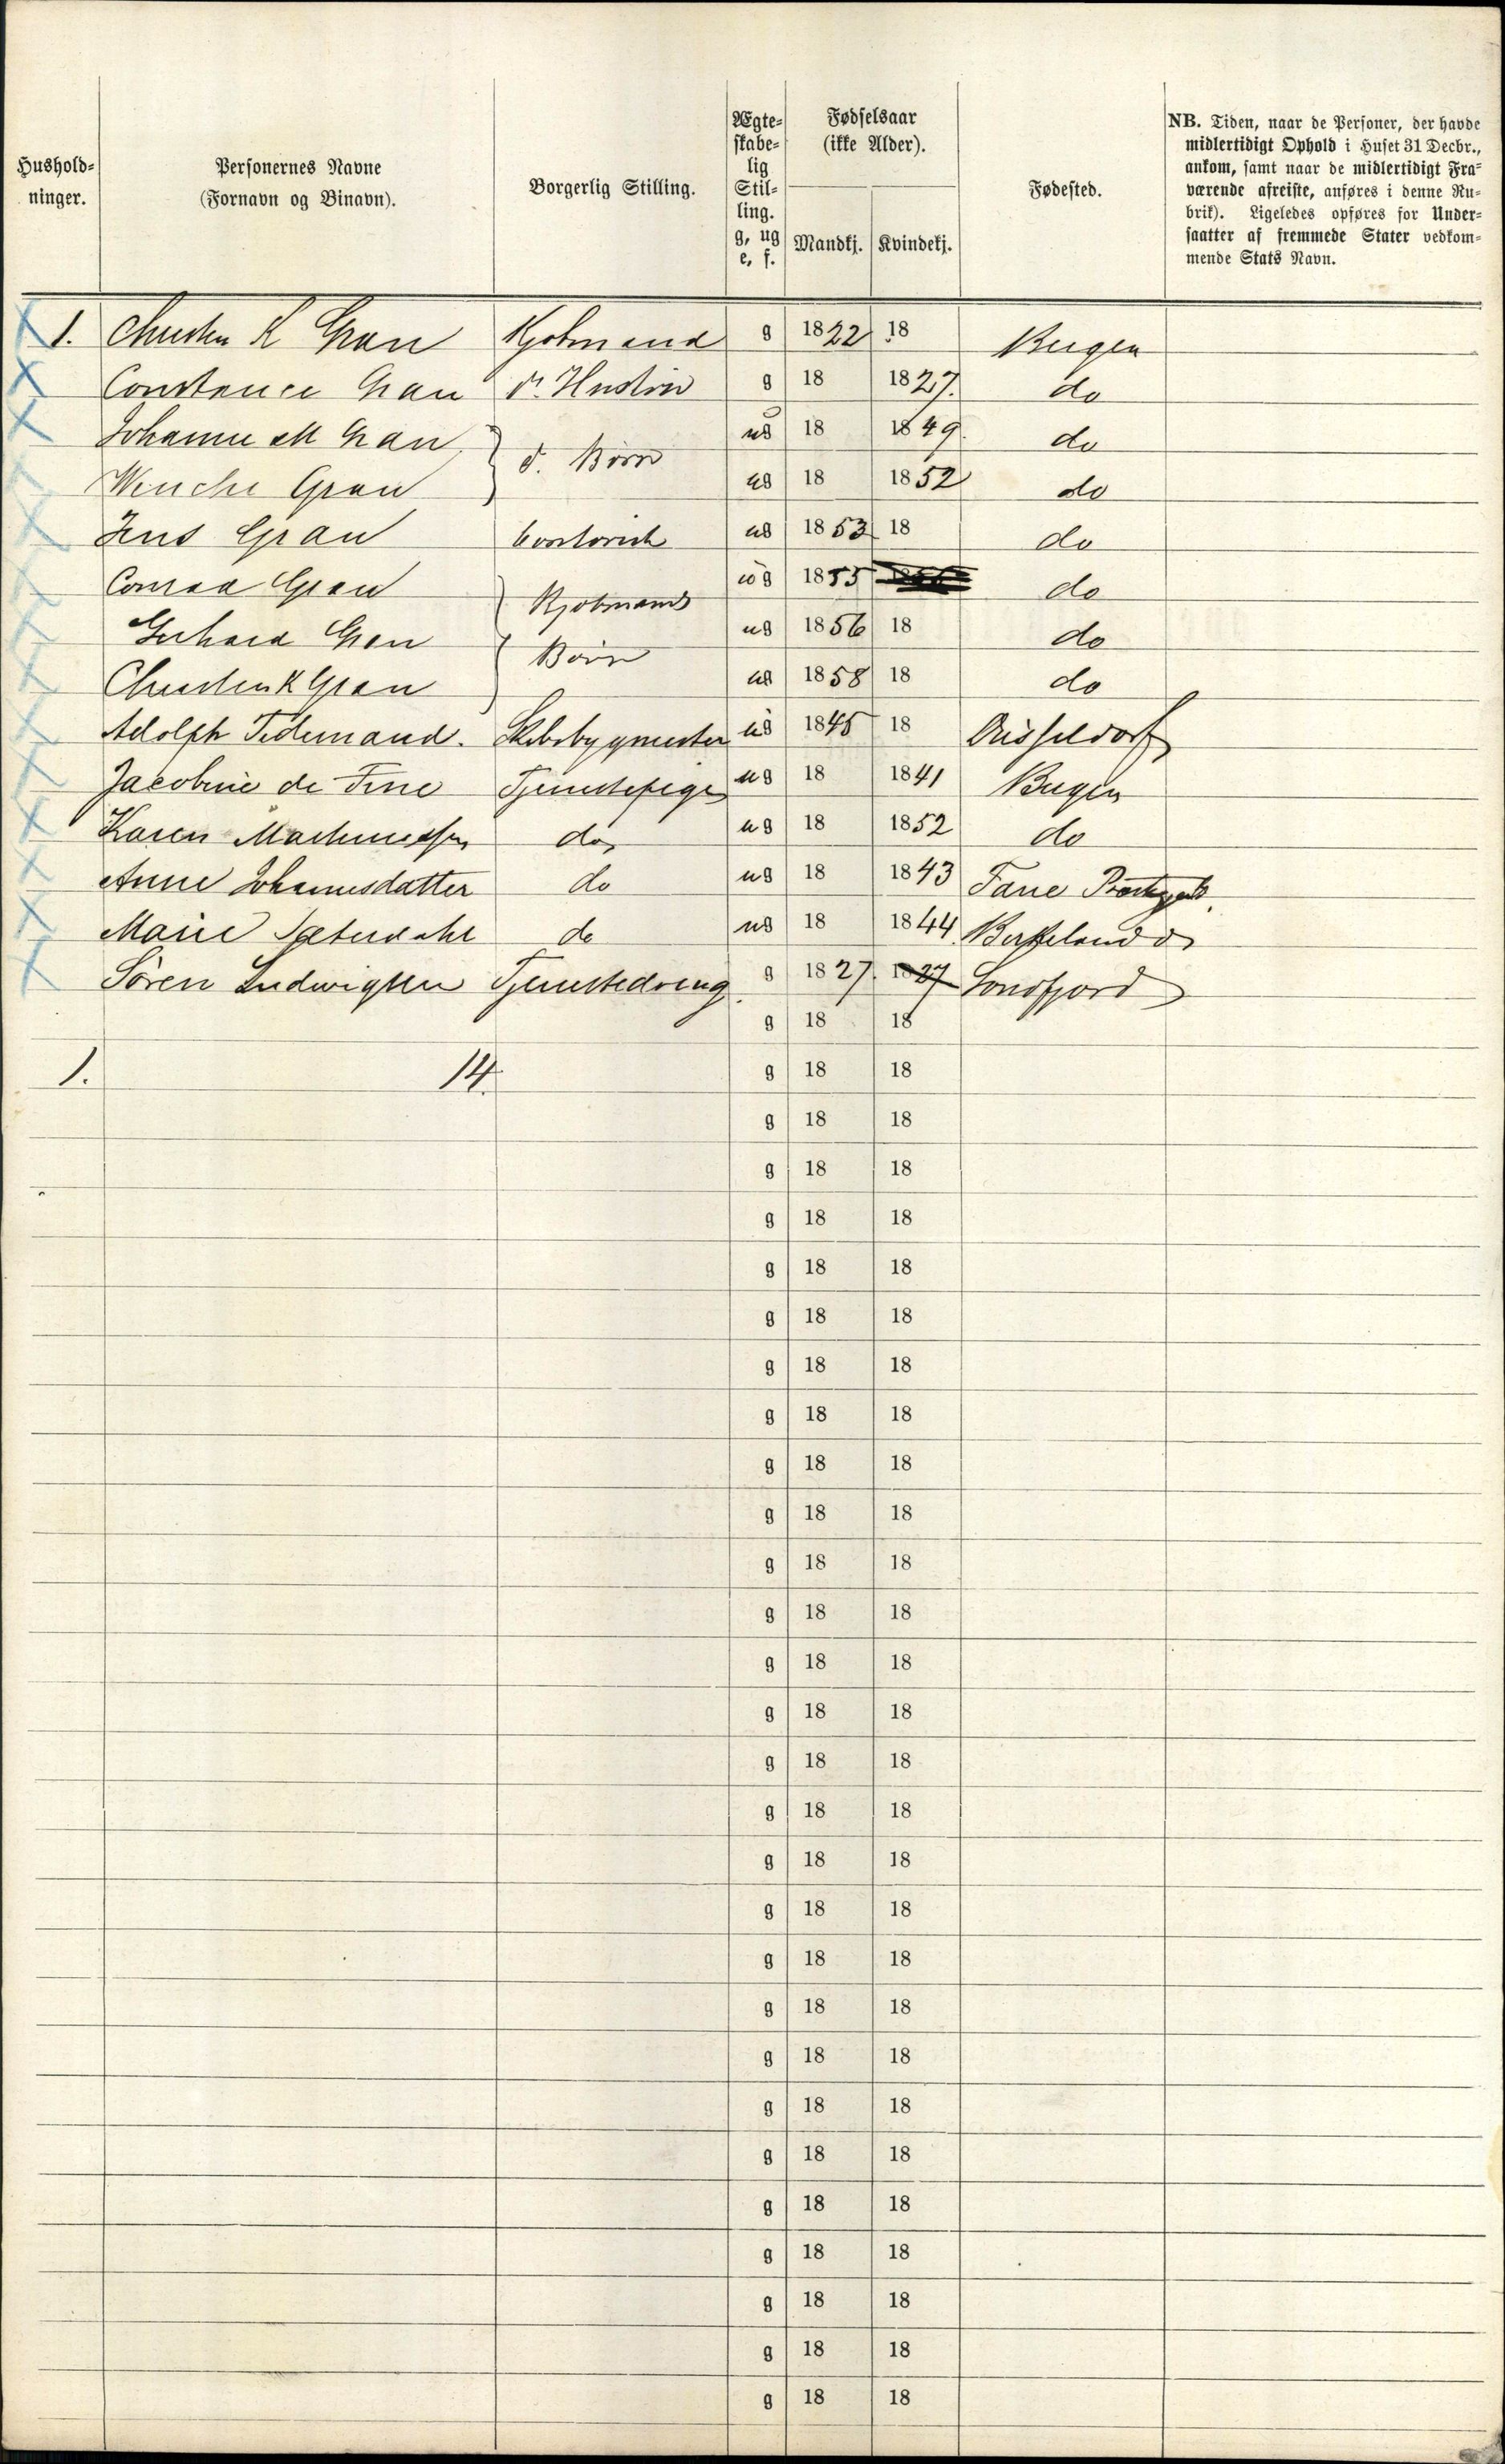 Hushold-
ninger.
Personernes Navne
(Fornavn og Binavn).
Borgerlig Stilling.
Ægte-
skabe-
lig
Stil-
ling.
g, ug
e, f.
Fødselsaar
(ikke Alder).
Mandkj. Kvindekj.
Fødested.
NB. Tiden, naar de Personer, der havde
midlertidigt Ophold i Huset 31 Decbr.,
ankom, samt naar de midlertidigt Fra-
værende afreiste, anføres i denne Ru-
brik). Ligeledes opføres for Under-
saatter af fremmede Stater vedkom-
mende Stats Navn.
1. Christen K Gran Kjøbmand g 1822 18 Bergen
Constance Gran dr. Hustru g 18 1827. do
Johanne M Gran ug 18 1849. do
d. Børn
Wenche Gran ug 18 1852 do
Jens Gran Contorist ug 1853 18 do
Conrad Gran ug 1855 do
Kjøbmands
Gerhard Gran ug 1856 18 do
Børn
Christen K Gran ug 1858 18 do
Adolph Tidemand. Skibsbygmester ug 1845 18 Düsseldorf
Jacobine de Fine Tjenestepige ug 18 1841 Bergen
Karen do ug 18 1852 do
Anne Johannesdatter do ug 18 1843 Fane Præstegjeld
Marie Sæterdahl do ug 18 1844 Birkeland do
Søren Ludwigsen Tjenestedreng g 1827. 1827 Søndfjord
g 18 18
1. 14. g 18 18
g 18 18
g 18 18
g 18 18
g 18 18
g 18 18
g 18 18
g 18 18
g 18 18
g 18 18
g 18 18
g 18 18
g 18 18
g 18 18
g 18 18
g 18 18
g 18 18
g 18 18
g 18 18
g 18 18
g 18 18
g 18 18
g 18 18
g 18 18
g 18 18
g 18 18
g 18 18
g 18 18